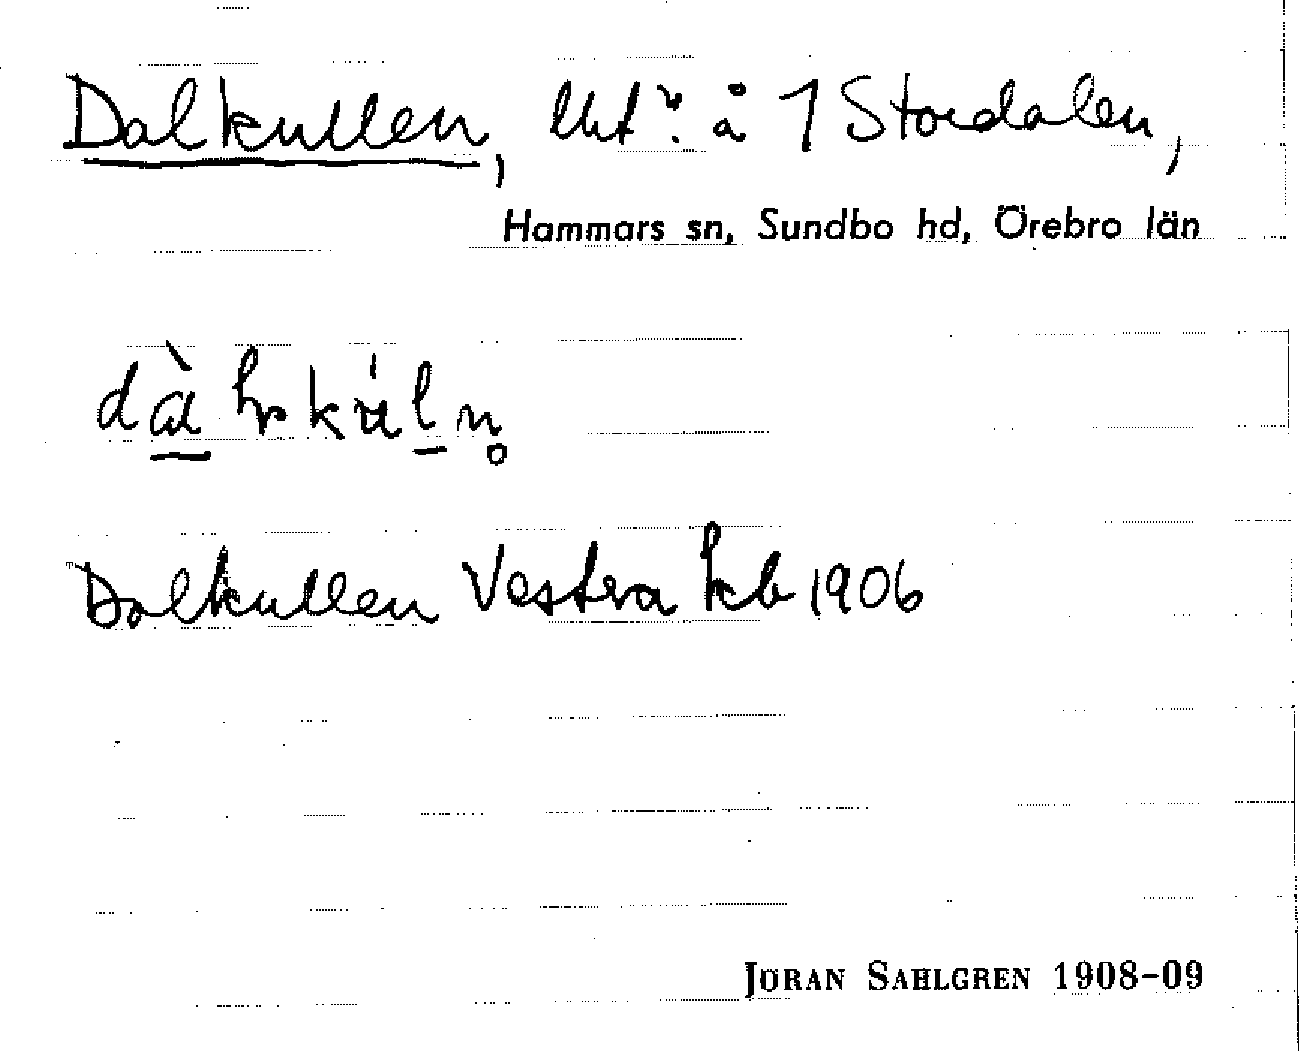 Dalkullen, å 1 Stordalen,
Hammars sn, Sundbo hd, Örebro län
Dalkullen Vestra kb 1906
JÖRAN SAHLGREN 1908–09